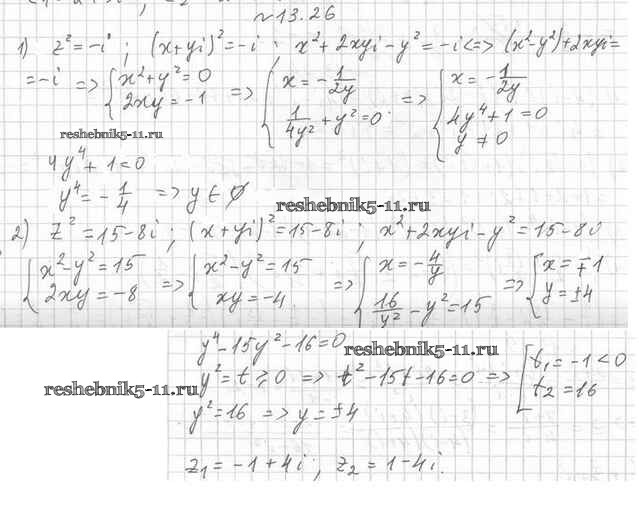 №13.26
1) z² = -i ; (x+yi)² = -i ; x² + 2xyi - y² = -i <=> (x²-y²)+2xyi =
= -i => { x² + y² = 0 ; 2xy = -1 => { x = -1/2y ; 1/4y² + y² = 0 => { x = -1/2y ; 4y⁴ + 1 = 0 ; y ≠ 0
reshebnik5-11.ru
4y⁴ + 1 = 0
y⁴ = -1/4 => y ∈ ∅
reshebnik5-11.ru
2) z² = 15-8i ; (x+yi)² = 15-8i ; x² + 2xyi - y² = 15-8i
{ x² - y² = 15 ; 2xy = -8 => { x² - y² = 15 ; xy = -4 => { x = -4/y ; 16/y² - y² = 15 => { x = ∓1 ; y = ±4
y⁴ - 15y² - 16 = 0
reshebnik5-11.ru
y² = t ⩾ 0 => t² - 15t - 16 = 0 => [ t₁ = -1 < 0 ; t₂ = 16
reshebnik5-11.ru
y² = 16 => y = ±4
z₁ = -1 + 4i ; z₂ = 1 - 4i.